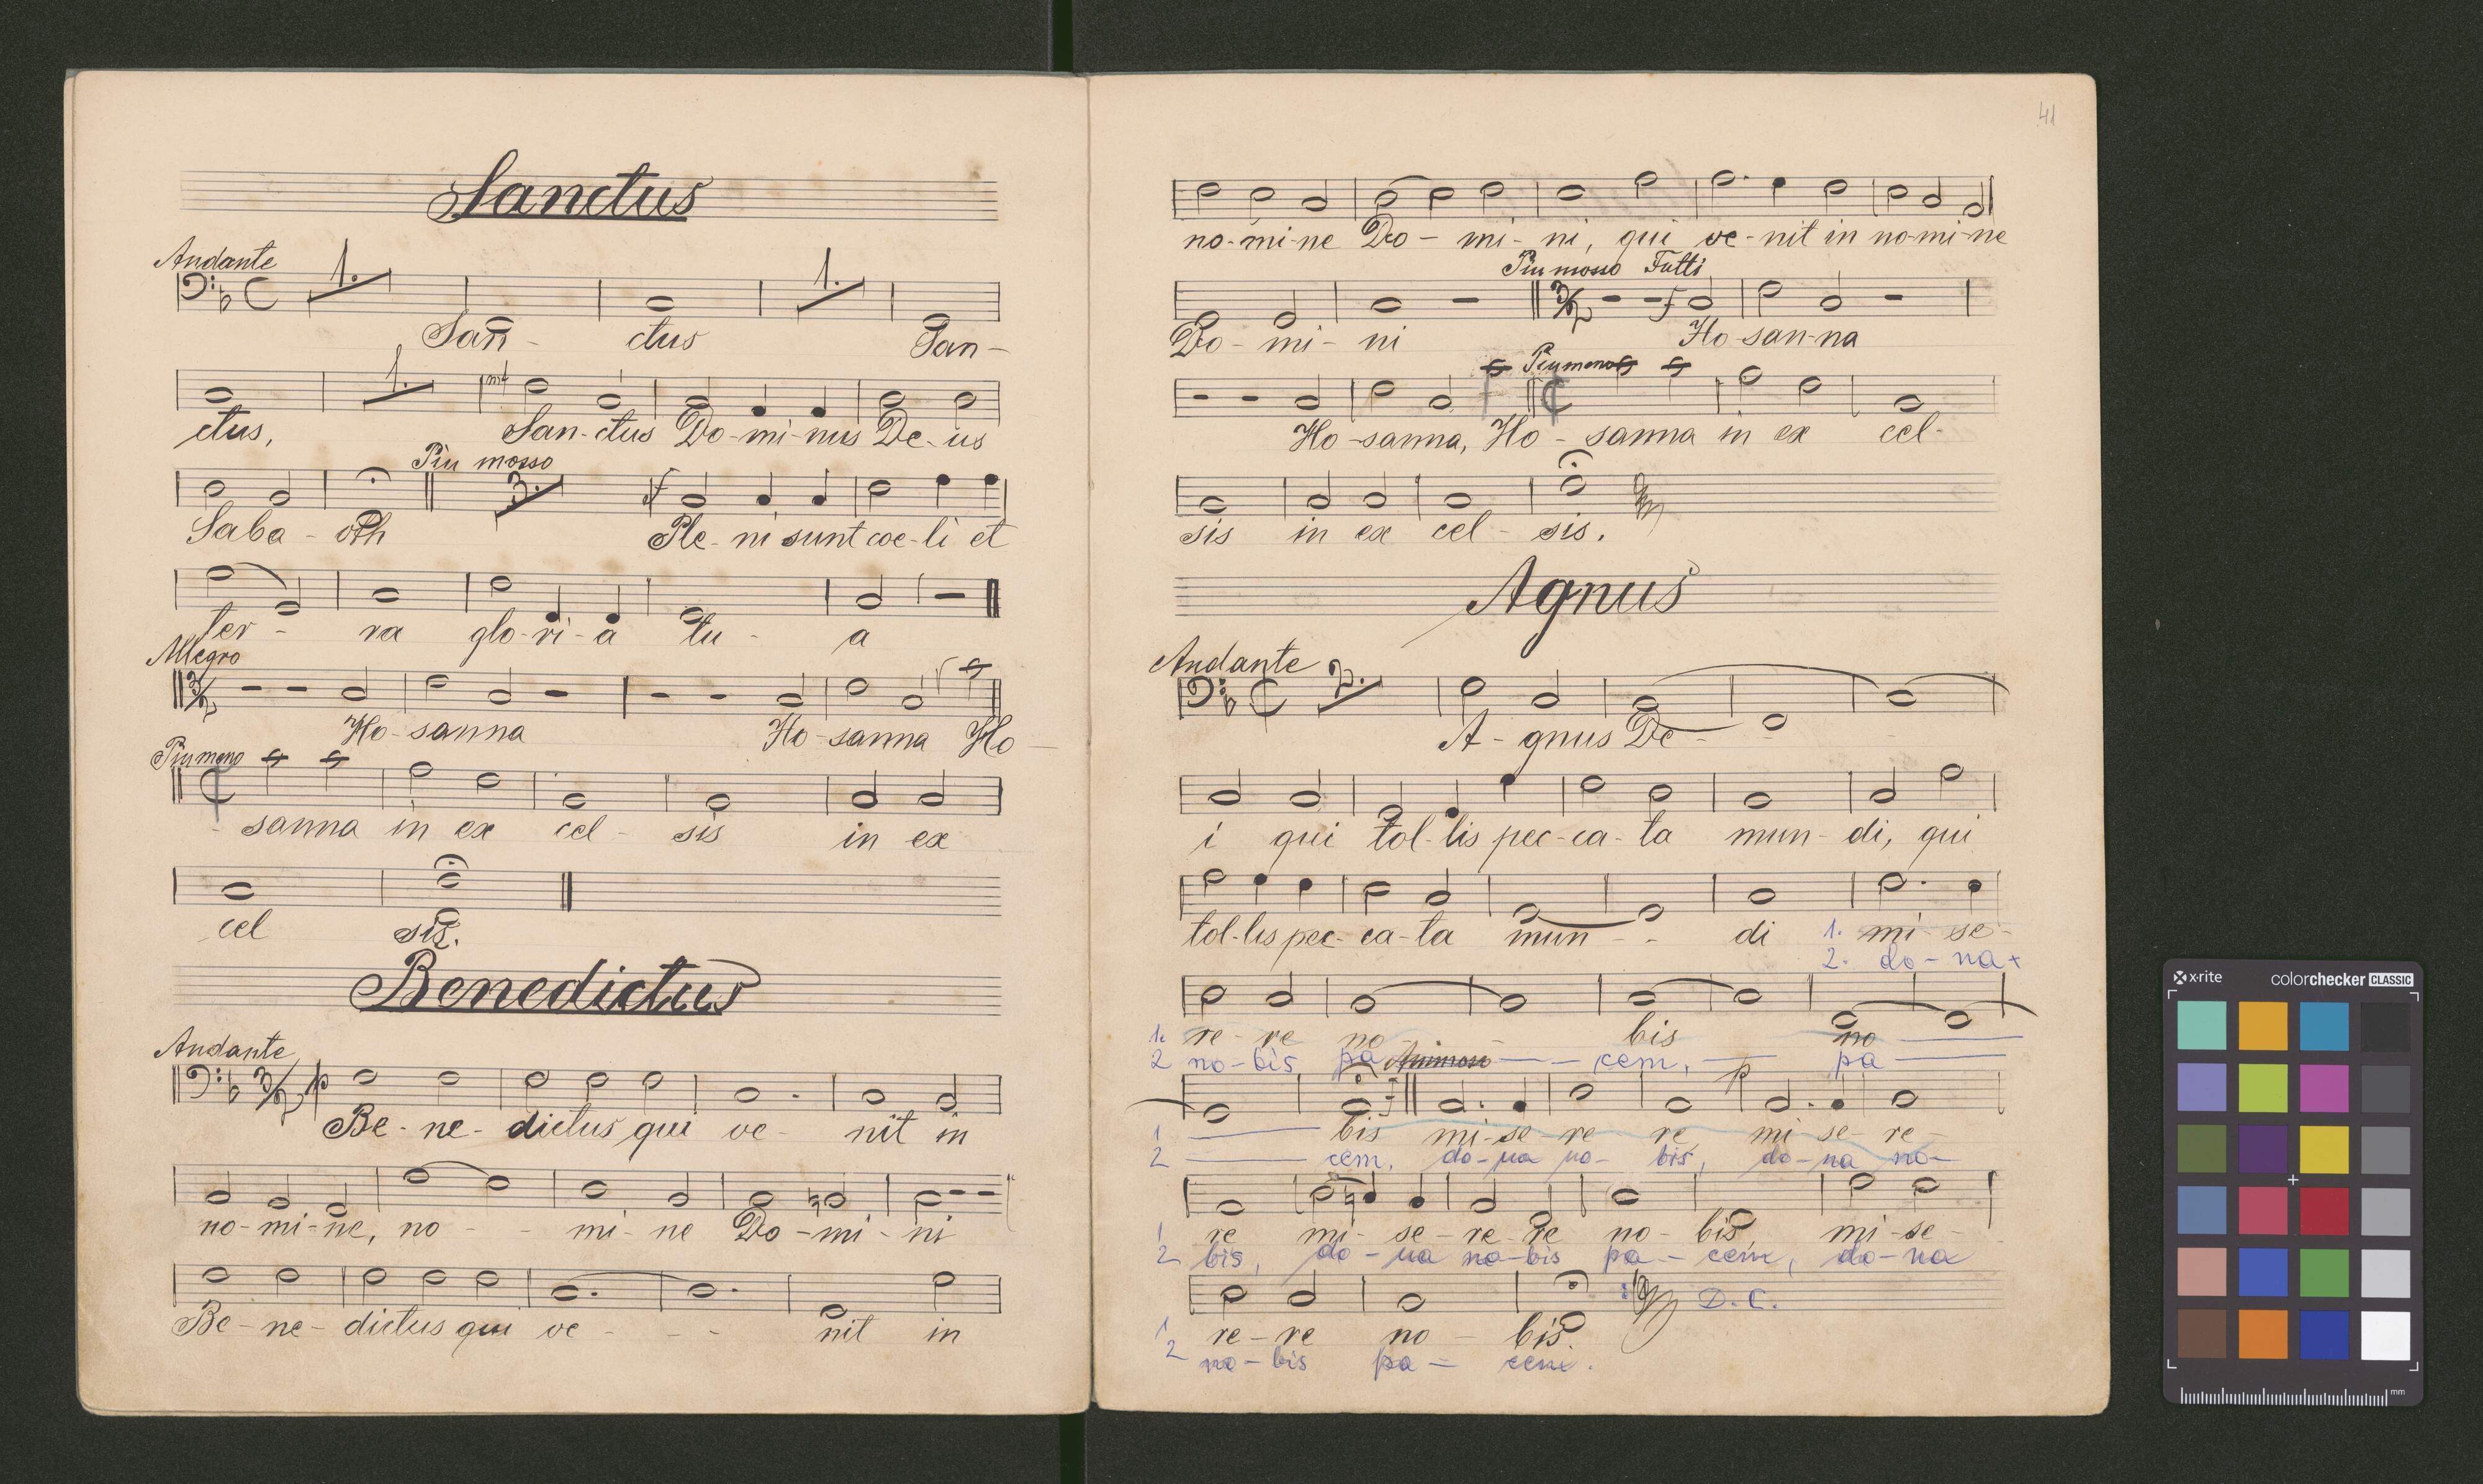 Sanctus
Andante
1. 1.
San - ctus San -
1. mf
ctus, San - ctus Do - mi - nus De - us
Piu mosso
3. f
Saba - oth Ple - ni sunt coe - li et
ter - ra glo - ri - a tu - a
Allegro
3/2
Ho - sanna Ho - sanna Ho -
Piu meno
- sanna in ex cel - sis in ex
cel sis.
Benedictus
Andante
3/2 p
Be - ne - dictus qui ve - nit in
no - mi - ne, no - - mi - ne Do - mi - ni
Be - ne - dictus qui ve - - - nit in
41
no - mi - ne Do - mi - ni, qui ve - nit in no - mi - ne
Piu mosso Tutti
3/2 f
Do - mi - ni Ho - san - na
Piu meno
f
Ho - sanna, Ho - sanna in ex cel -
sis in ex cel - sis.
Agnus
Andante
2.
A - gnus De - - -
i qui tol - lis pec - ca - ta mun - di, qui
tol - lis pec - ca - ta mun - - di 1. mi - se -
2. do - na +
1. re - re no - - bis no
2 no - bis pa Animoso - cem, pa
p
1 bis mi - se - re - re mi - se - re -
2 cem, do - na no - bis, do - na no -
1 re mi - se - re - re no - bis, mi - se -
2 bis, do - na no - bis pa - cem, do - na
D. C.
1 re - re no - bis.
2 no - bis pa - cem.
x-rite colorchecker CLASSIC
mm